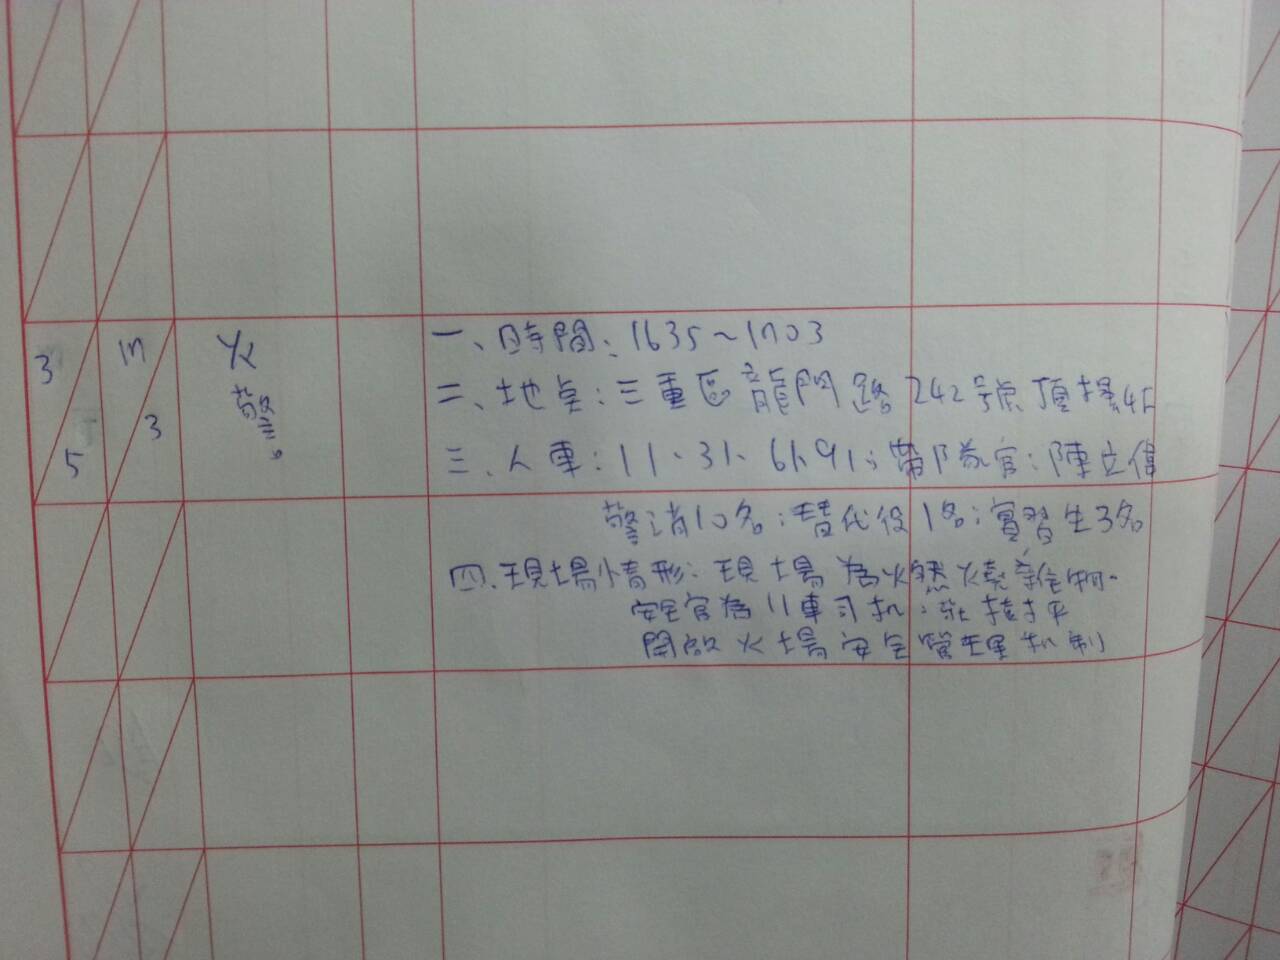 3
5
17
3
火
警。
一、時間：1635~1703
二、地点：三重區龍門路242號頂樓4F
三、人車：11、31、61、91；帶隊官：陳立偉
警消10名；替代役1名；實習生3名
四、現場情形：現場為火燃燒雜物.
安全官為11車司机：
開啟火場安全管理机制